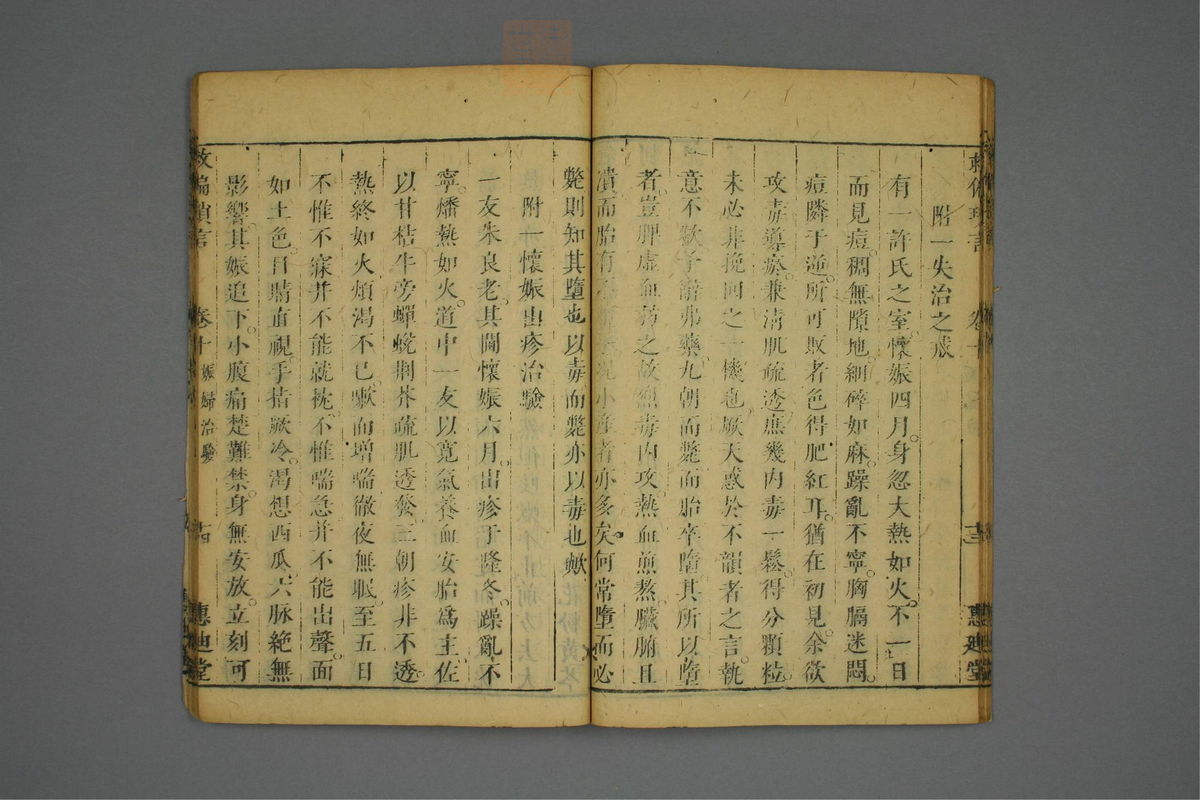 附一失治之戒
有一許氏之室懷娠四月身忽大熱如火不一日
而見痘稠無隙地細碎如麻躁亂不寧胸膈迷悶
痘隣于逆所可敗者色得肥紅耳猶在初見余欲
攻毒導瘀兼清肌疏透庶幾內毒一鬆得分顆粒
未必非挽回之一機也厥天惑於不韻者之言執
意不欲予辭弗藥九朝而斃而胎卒墮其所以墮
者豈脾虛血弱之故烈毒內攻熱血煎熬臟腑且
潰而胎有不 小產者亦多矣何常墮而必
斃則知其墮也以毒而斃亦以毒也歟
附一懷娠出疹治驗
一友朱良老其閫懷娠六月出疹于隆冬躁亂不
寧燔熱如火道中一友以寬氣養血安胎爲主佐
以甘桔牛旁蟬蛻荆芥疏肌透發三朝疹非不透
熱終如火煩渴不已嗽而增喘徹夜無眠至五日
不惟不寐并不能就枕不惟喘急并不能出聲面
如土色目睛直視手指厥冷渴想西瓜六脉絶無
影響其娠追下小腹痛楚難禁身無安放立刻可
救偏瑣言 卷十 娠婦治驗 十四 惠迪堂